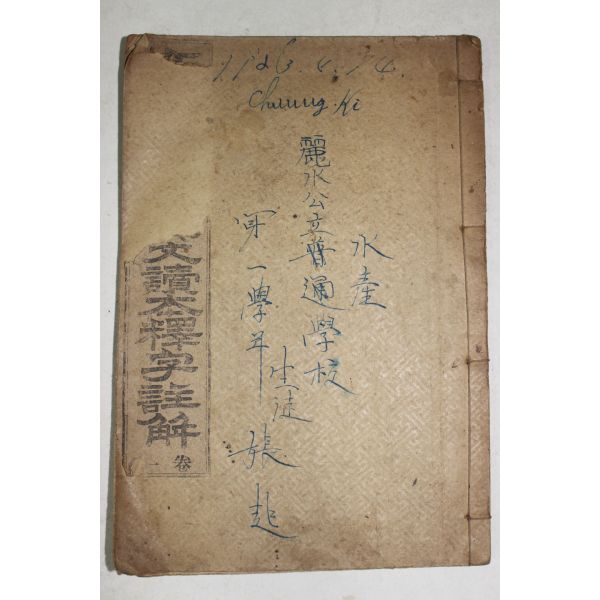 Chuung. Ki
水産
麗水公立普通學校
第一學年
生徒
張起
文讀本釋字註解
卷一